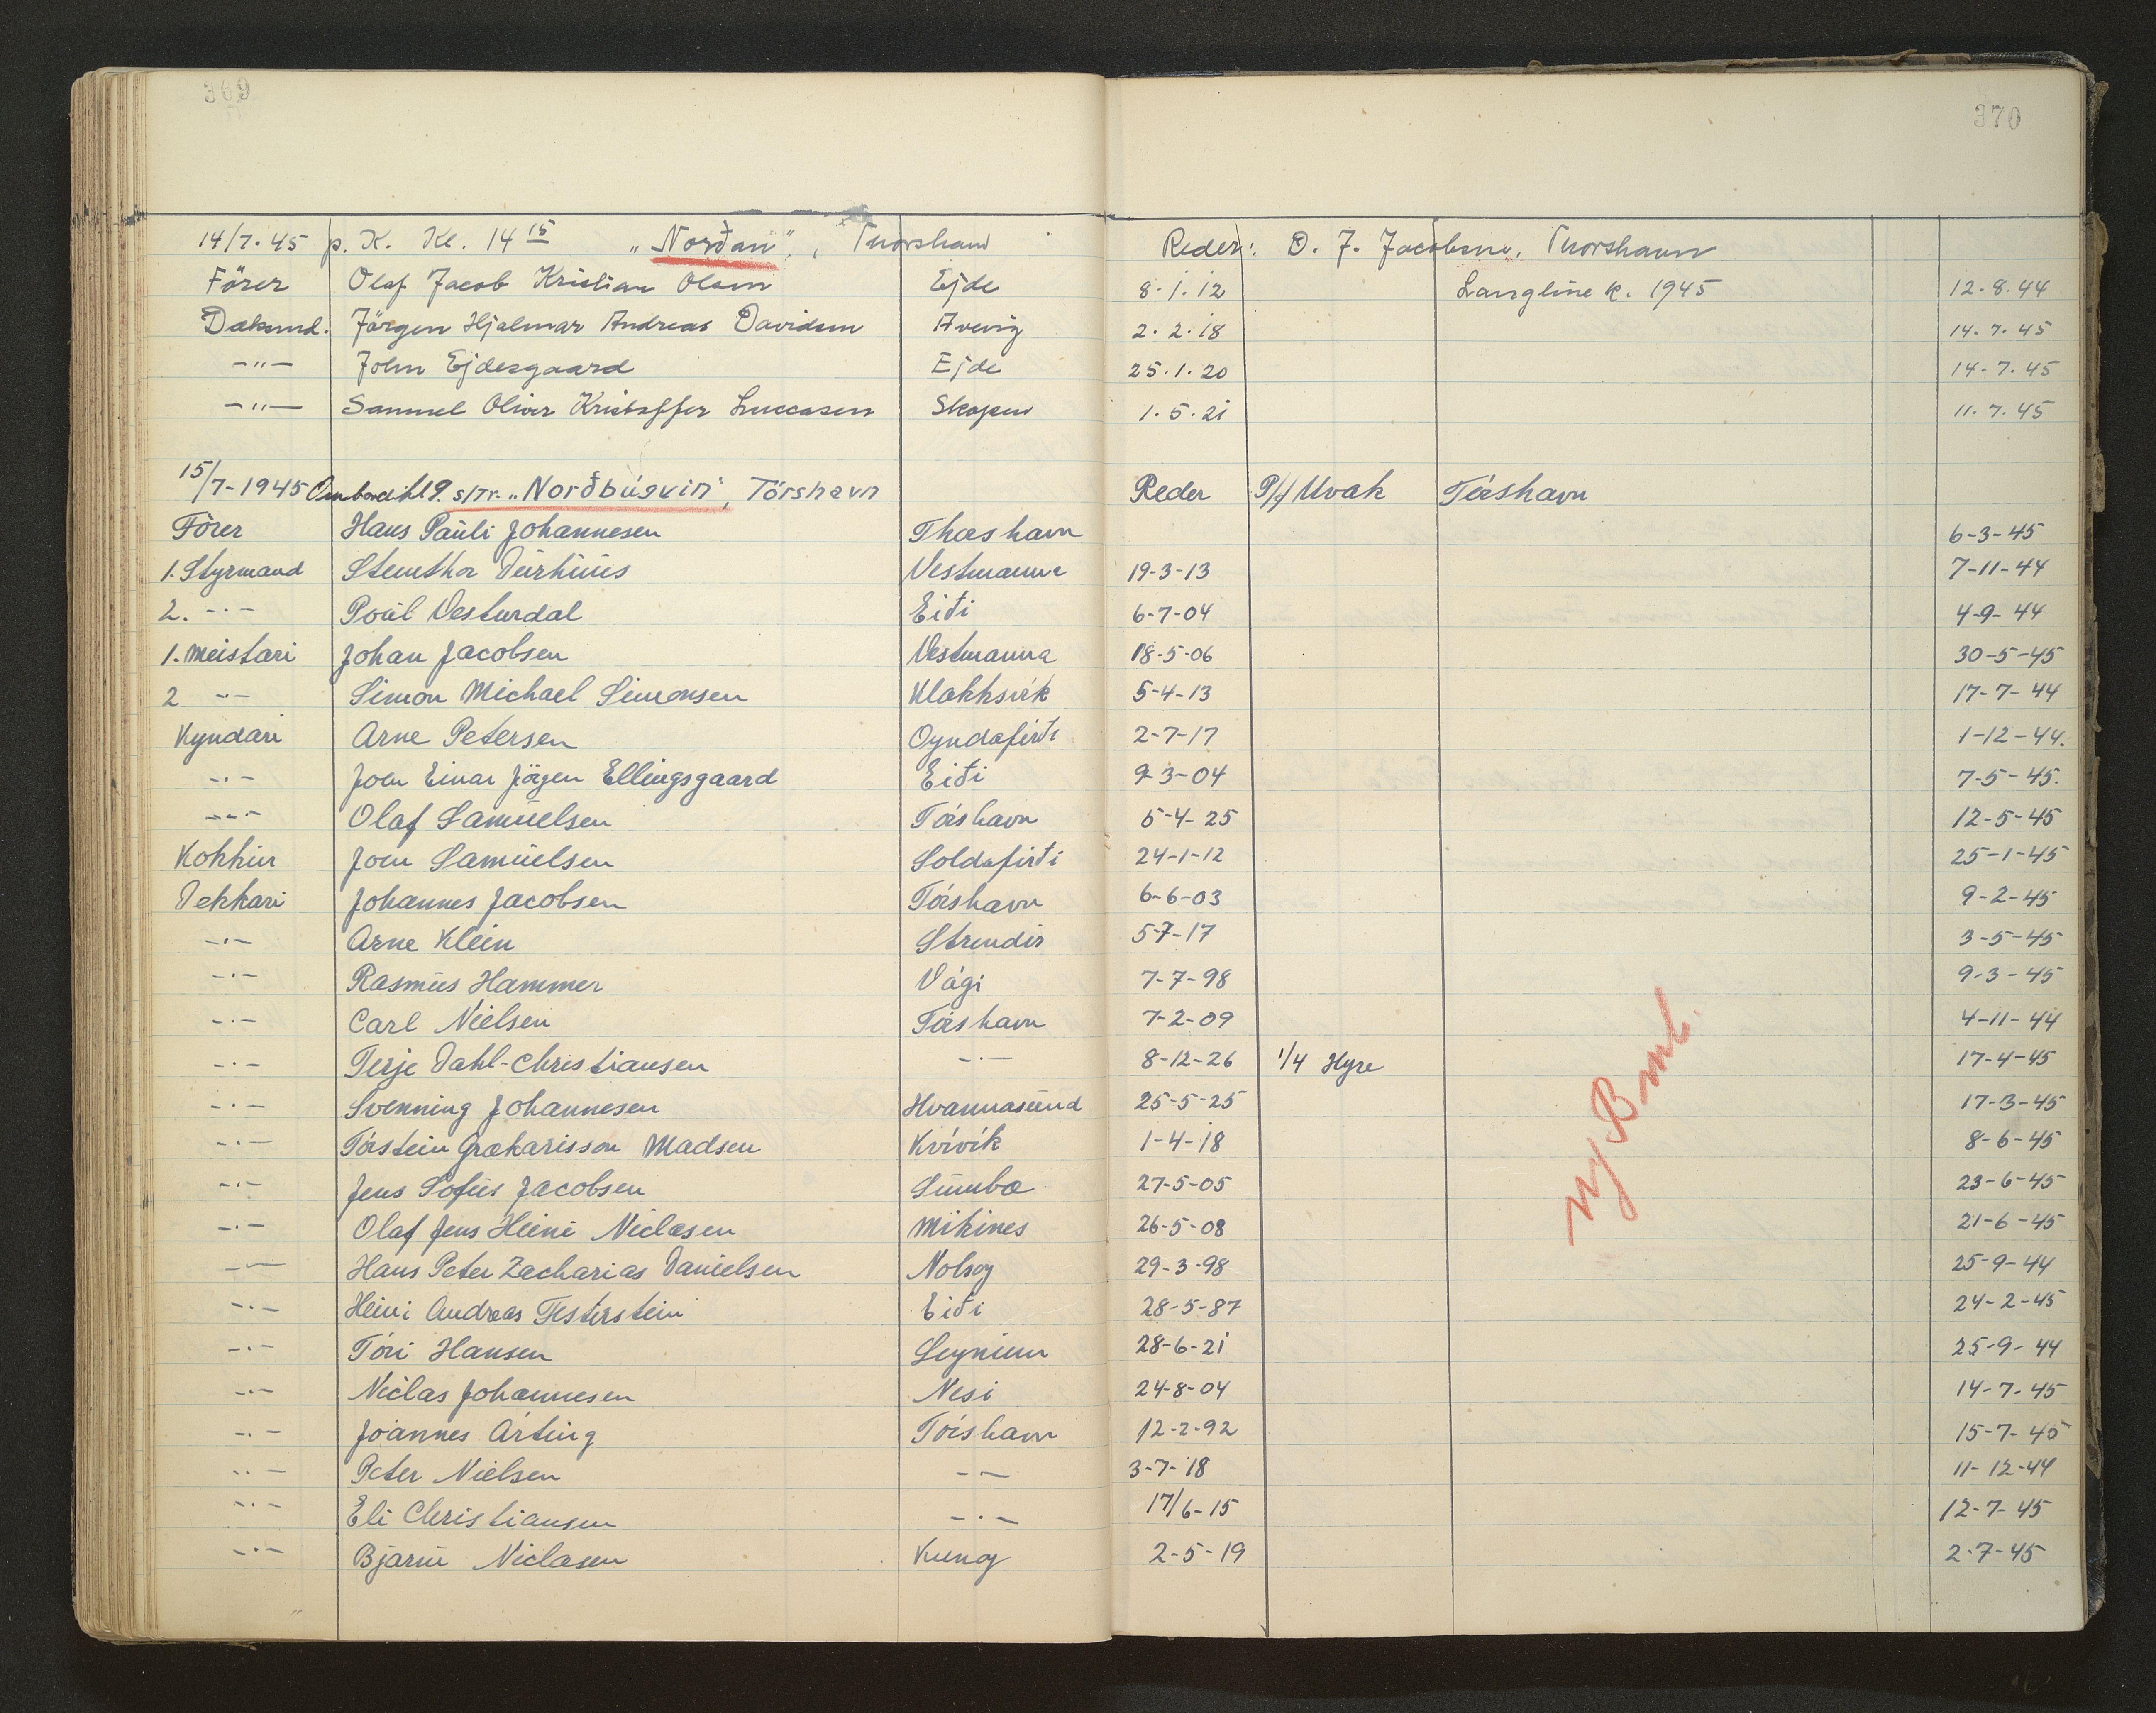 369
370
14/7-45 p. K. Kl. 14 15 "Norðan", Thorshavn Reder: D. J. Jacobsen, Thorshavn
Förer Olaf Jacob Kristian Olsen Ejde 8.1.12 Langline k. 1945 12.8.44
Daksmd. Jörgen Hjalmar Andreas Davidsen Avevig 2.2.18 14.7.45
-"- John Ejdesgaard Ejde 25.1.20 14.7.45
-"- Samuel Oliver Kristoffer Luccasen Skopen 1.5.21 11.7.45
15/7-1945 Ombord kl 9. s/Tr. "Norðbúgvin", Tórshavn Reder P/f Uvak Tórshavn
Förer Hans Pauli Johannesen Thorshavn 6-3-45
1. Styrmand Steinthor Durhuus Vestmanna 19-3-13 7-11-44
2. -·- Poul Vesturdal Eiði 6-7-04 4-9-44
1. meistari Johan Jacobsen Vestmanna 18-5-06 30-5-45
2 -·- Simon Michael Simonsen Klakksvík 5-4-13 17-7-44
Kyndari Arne Petersen Oyndafirði 2-7-17 1-12-44.
-·- Joen Einar Jörgen Ellingsgaard Eiði 9-3-04 7-5-45.
-·- Olaf Samuelsen Tórshavn 5-4-25 12-5-45
Kokkur Joen Samuelsen Soldafirði 24-1-12 25-1-45
Dekkari Johannes Jacobsen Tórshavn 6-6-03 9-2-45
-·- Arne Klein Strendir 5-7-17 3-5-45
-·- Rasmus Hammer Vági 7-7-98 9-3-45
-·- Carl Nielsen Tórshavn 7-2-09 4-11-44
-·- Terje Dahl-Christiansen -·- 8-12-26 1/4 Hyre 17-4-45
-·- Svenning Johannesen Hvannasund 25-5-25 17-3-45
-·- Tórstein Grækarisson Madsen Kvívík 1-4-18 8-6-45
-·- Jens Sofus Jacobsen Sumbæ 27-5-05 23-6-45
-·- Olaf Jens Heini Niclasen Mikines 26-5-08 21-6-45
-·- Hans Peter Zacharias Danielsen Nolsoy 29-3-98 25-9-44
-·- Heini Andreas Festerstein Eiði 28-5-87 24-2-45
-·- Tóri Hansen Leynum 28-6-21 25-9-44
-·- Niclas Johannesen Nesi 24-8-04 14-7-45
-·- Jóannes Arting Tórshavn 12-2-92 15-7-45
-·- Peter Nielsen -·- 3-7-18 11-12-44
-·- Eli Christiansen -·- 17/6-15 12-7-45
-·- Bjarni Niclasen Kunoy 2-5-19 2-7-45
ny Bml.